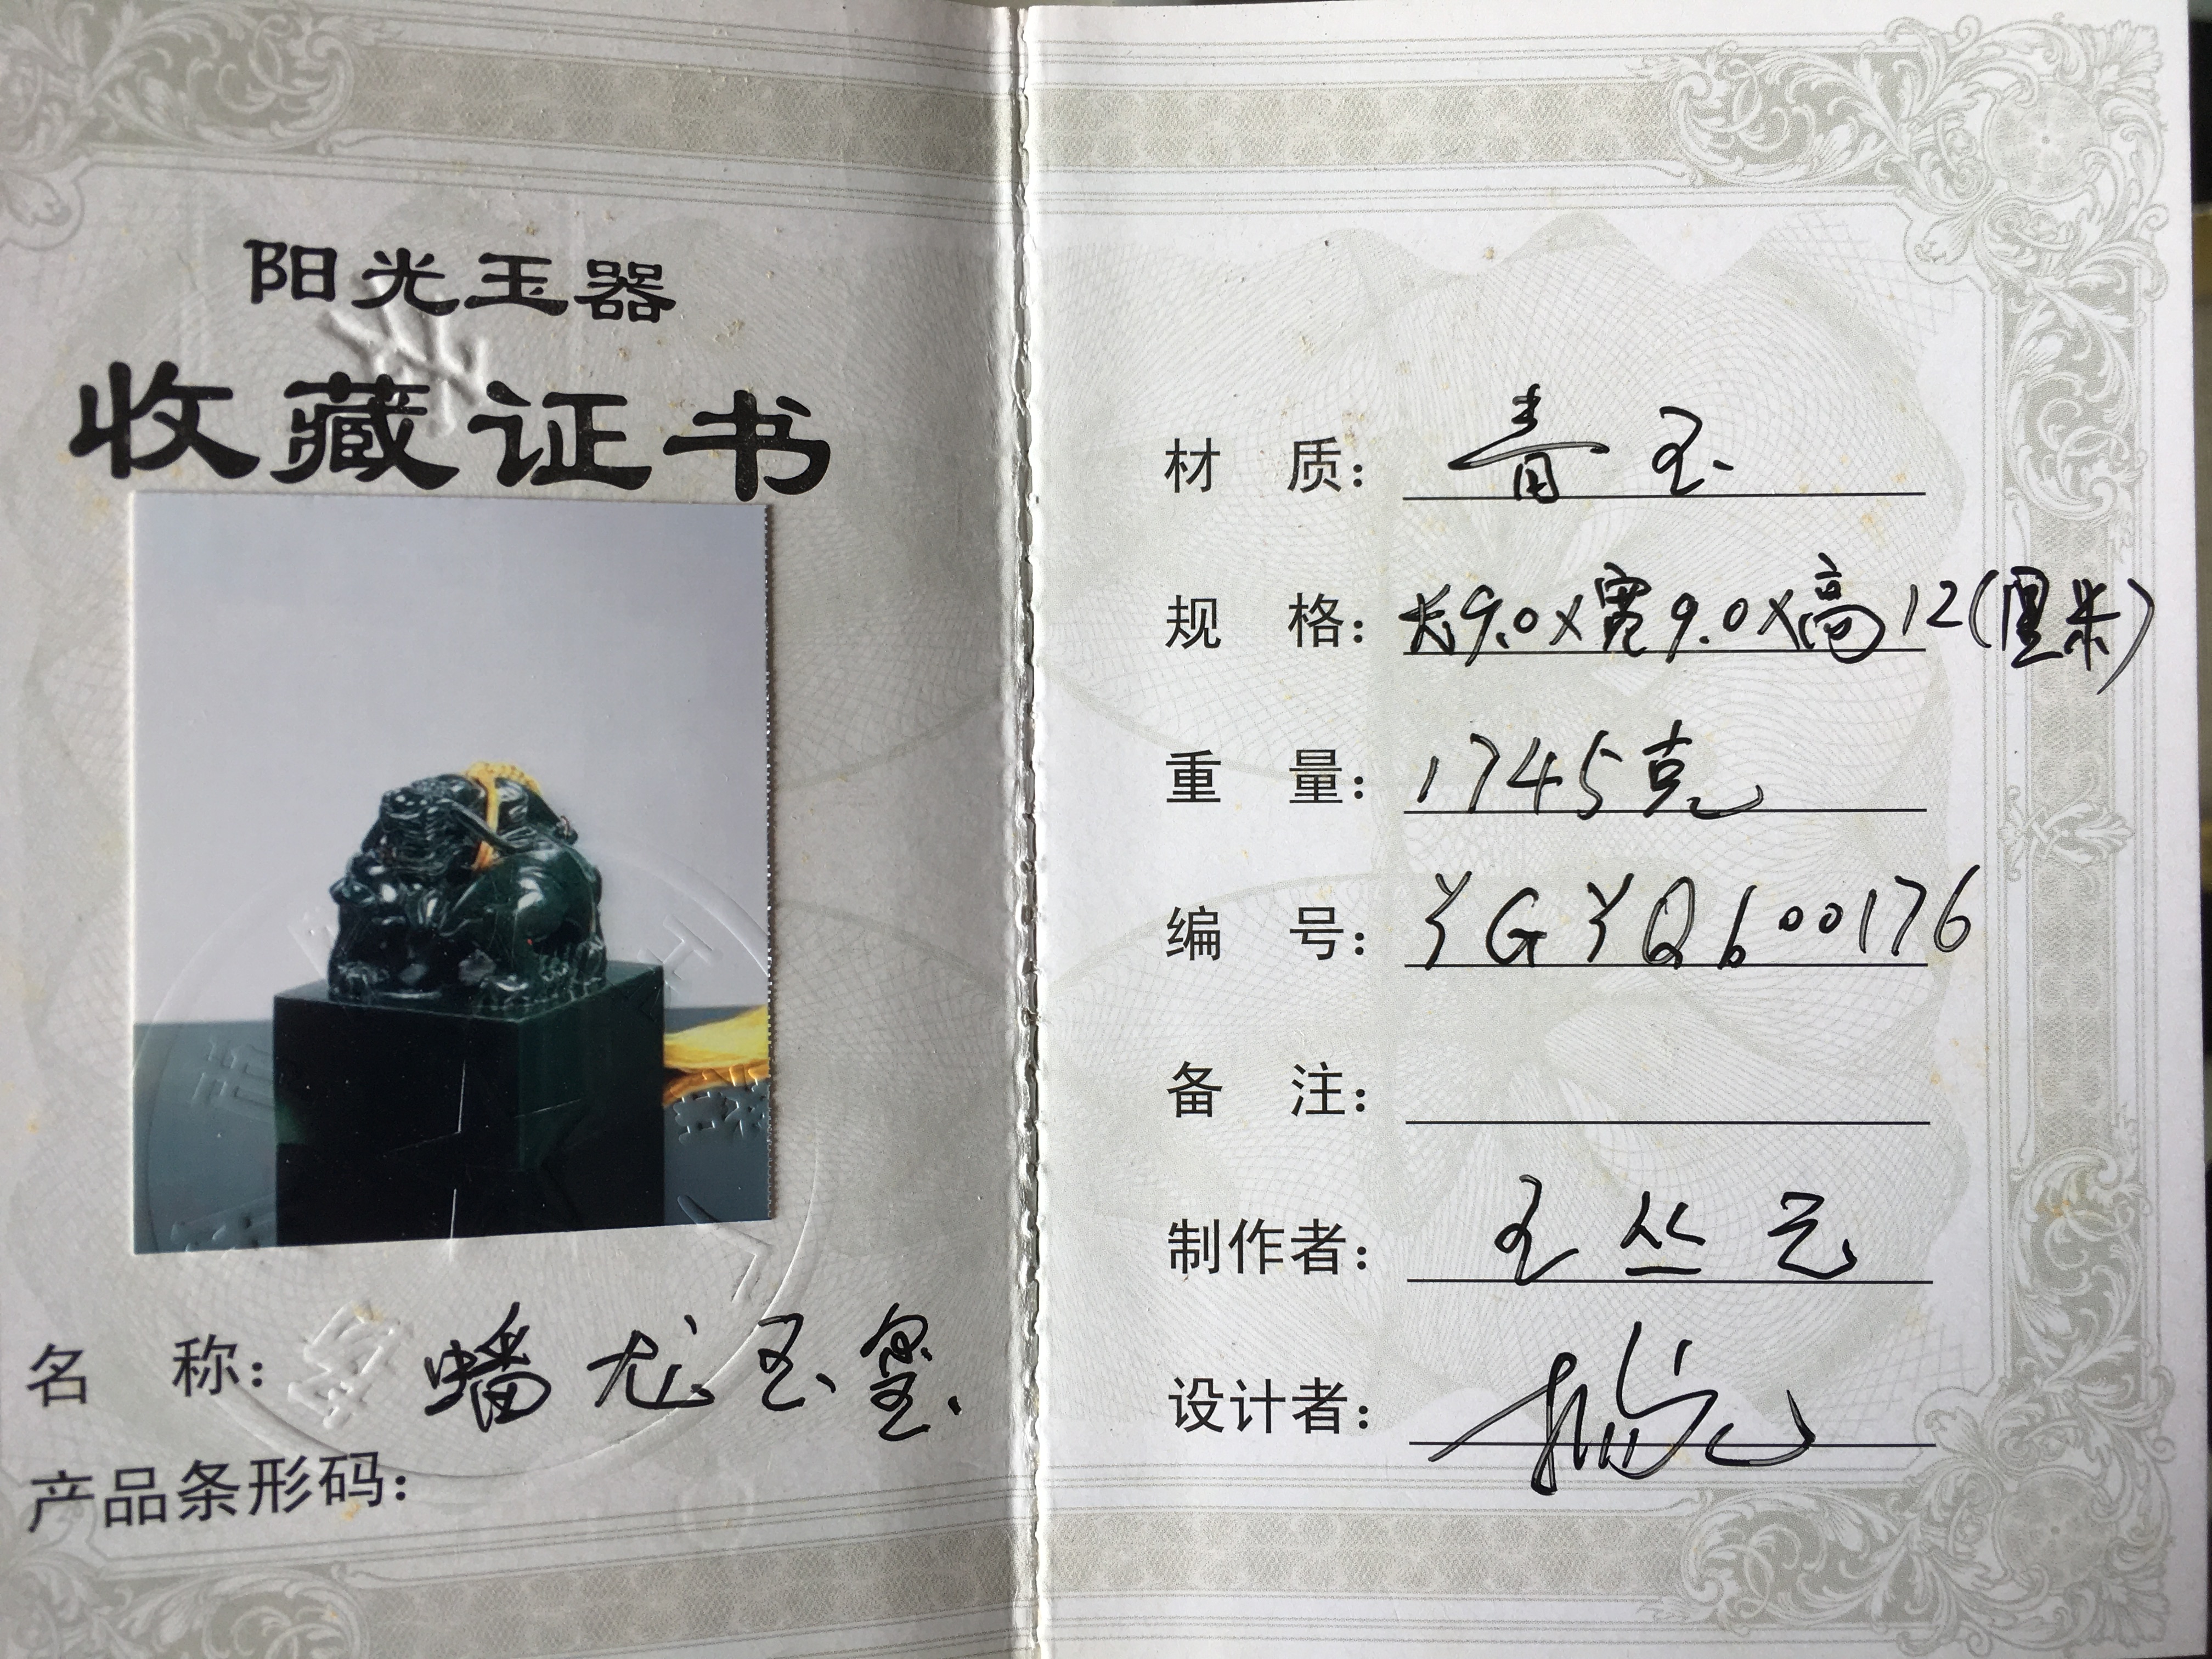 阳光玉器
收藏证书
名 称：蟠龙玉玺
产品条形码：
材 质：青玉
规 格：长9.0×宽9.0×高12(厘米)
重 量：1745克
编 号：YGYQ600176
备 注：
制作者：王丛元
设计者：